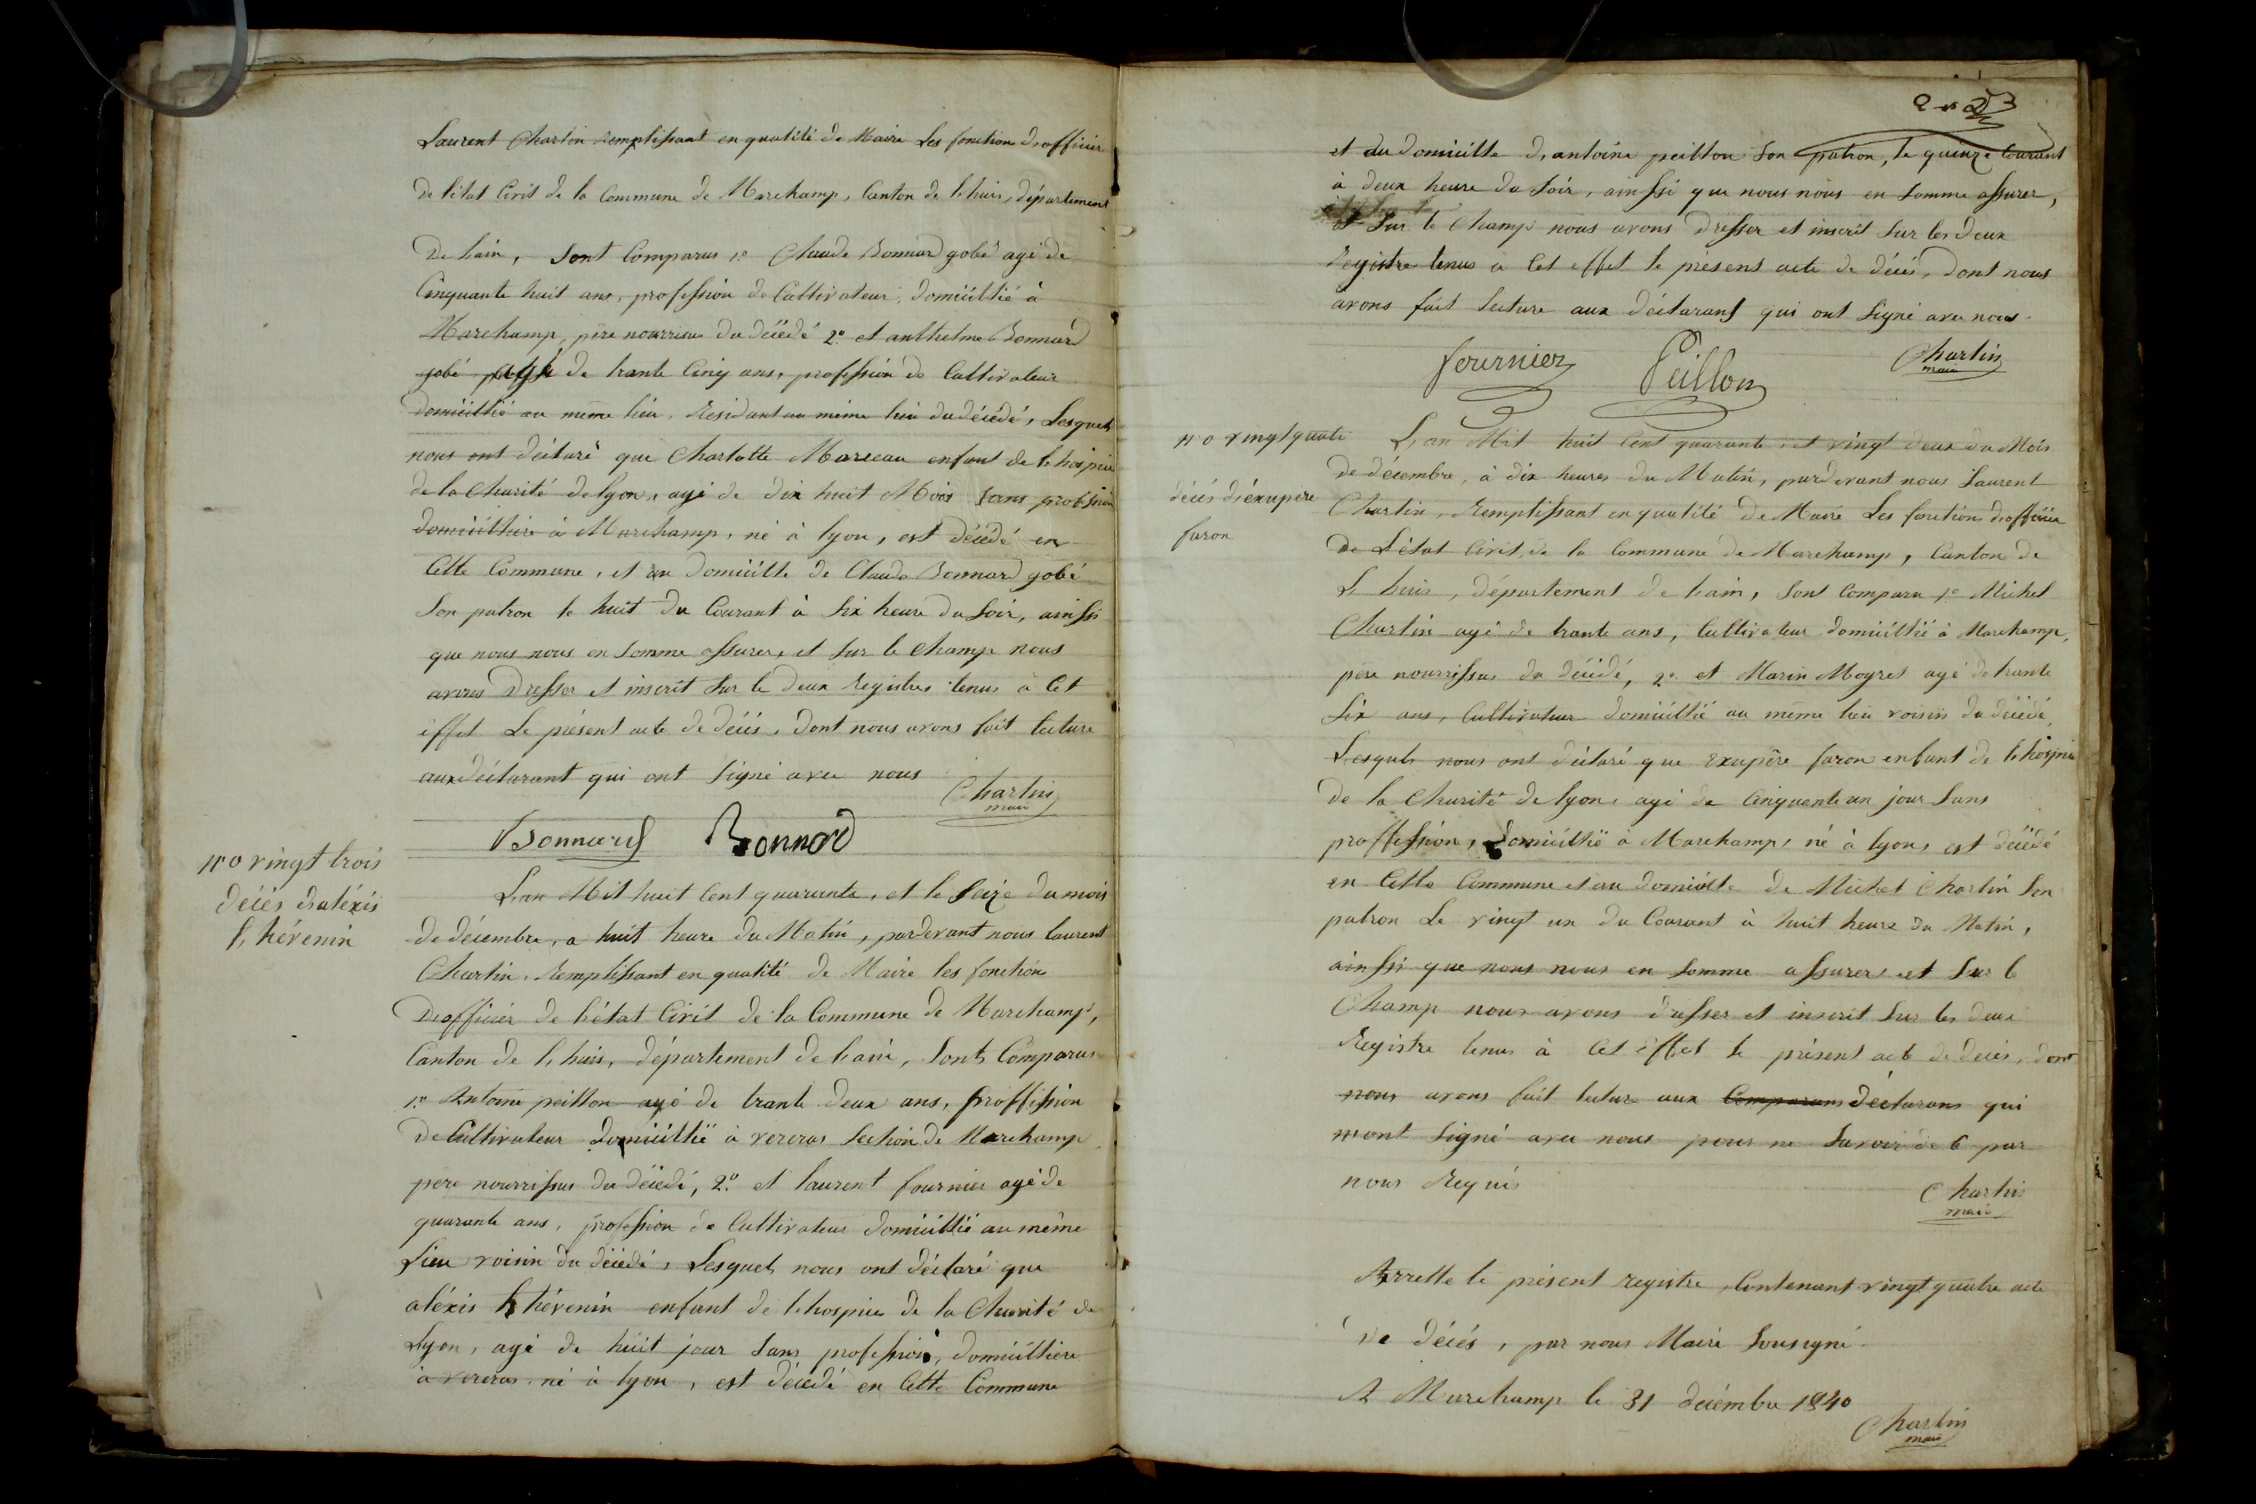 Laurent Charlin remplissant en qualité de Maire Les fonction d'officier
de l'état Civil de la Commune de Marchamp, Canton de lhuis, département
De lain, sont Comparus 1º Claude Bonnard gobé agé de
Cinquante huit ans, profession de Cultivateur, domicillié à
Marchamp, père nourricie du décédé 2º et anthelme Bonnard
gobé agé de trante Cinq ans, profession de Cultivateur
domicillié au même lieu, Residant au même lieu du décédé, Lesquels
nous ont déclaré que Charlotte Marceau enfant de lhospice
de la Charité de lyon, agé de dix huit Mois sans profession
domicillière à Marchamp, né à lyon, est décédé en
Cette Commune, et au domicille de Claude Bonnard gobé
Son patron le huit du Courant à six heure du soir, ainssi
que nous nous en somme assurer, et sur le champ nous
avons dresser et inscrit sur le deux registres tenus à Cet
effet Le présent acte de décès, dont nous avons fait lecture
aux déclarant qui ont signé avec nous
Charlin
maire
Bonnard Bonnard
nº vingt trois
décès d'aléxis
thévenin
L'an Mil huit Cent quarante, et le seize du mois
de décembre, a huit heure du Matin, pardevant nous laurent
Charlin, Remplissant en qualité de Maire les fonction
D'officier de l'état Civil de la Commune de Marchamp,
Canton de lhuis, département de lain, sont Comparus
1º Antoine peillon agé de trante deux ans, proffession
de Cultivateur domicillié à vereras section de Marchamp
père nourrissus du décédé, 2º et laurent fournier agé de
quarante ans, profession de Cultivateur domicillié au même
lieu voisin du décédé, Lesquels nous ont déclaré que
aléxis thévenin enfant de lhospice de la Charité de
Lyon, agé de huit jour sans profession, domicillière
à vereras né à lyon, est décédé en Cette Commune
et du domicille d'antoine peillon son patron, le quinze Courant
à deux heure du soir, ainssi que nous nous en somme assurer,
et sur le Champ nous avons dresser et inscrit sur les deux
registre tenus à Cet effet le présent acte de décès, dont nous
avons fait lecture aux déclarans qui ont signé avec nous
fournier Peillon Charlin
maire
nº vingt quatre
décès d'éxupère
faron
L'an Mil huit Cent quarante, et vingt deux du Mois
de décembre, à dix heures du Matin, pardevant nous Laurent
Charlin, Remplissant en qualité de Maire Les fonction d'officier
de L'état Civil, de la Commune de Marchamp, Canton de
Lhuis, département de lain, sont Comparu 1º Michel
Charlin agé de trante ans, Cultivateur domicillié à Marchamp,
père nourrissus du décédé, 2º et Marin Moyret agé de trante
six ans, Cultivateur domicillié au même lieu voisin du décédé,
Lesquels nous ont déclaré que Exupère faron enfant de lhospice
de la Charité de lyon, agé de Cinquante un jour sans
proffession, Domicillié à Marchamp, né à lyon, est décédé
en Cette Commune et au domicille de Michel Charlin son
patron Le vingt un du Courant à huit heure du Matin,
ainssi que nous nous en somme assurer et sur le
Champ nous avons dresser et inscrit sur les deux
Registre tenus à Cet effet le présent acte de décès, dont
nous avons fait lecture aux Comparans déclarans qui
mont signé avec nous pour ne savoir de ce par
nous Requis
Charlin
maire
Arrette le présent registre, Contenant vingt quatre acte
de décès, par nous Maire Sousigné
A Marchamp le 31 décembre 1840
Charlin
maire